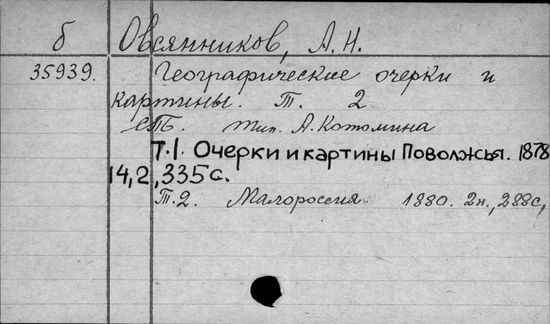 б Овсянников, А. Н.
35939. Географические очерки и
картины. Т. 2
СПБ. тип. А. Котомина
Т.1. Очерки и картины Поволжья. 1878
14,2,335 с.
Т.2. Малороссия. 1880. 2н., 288с,